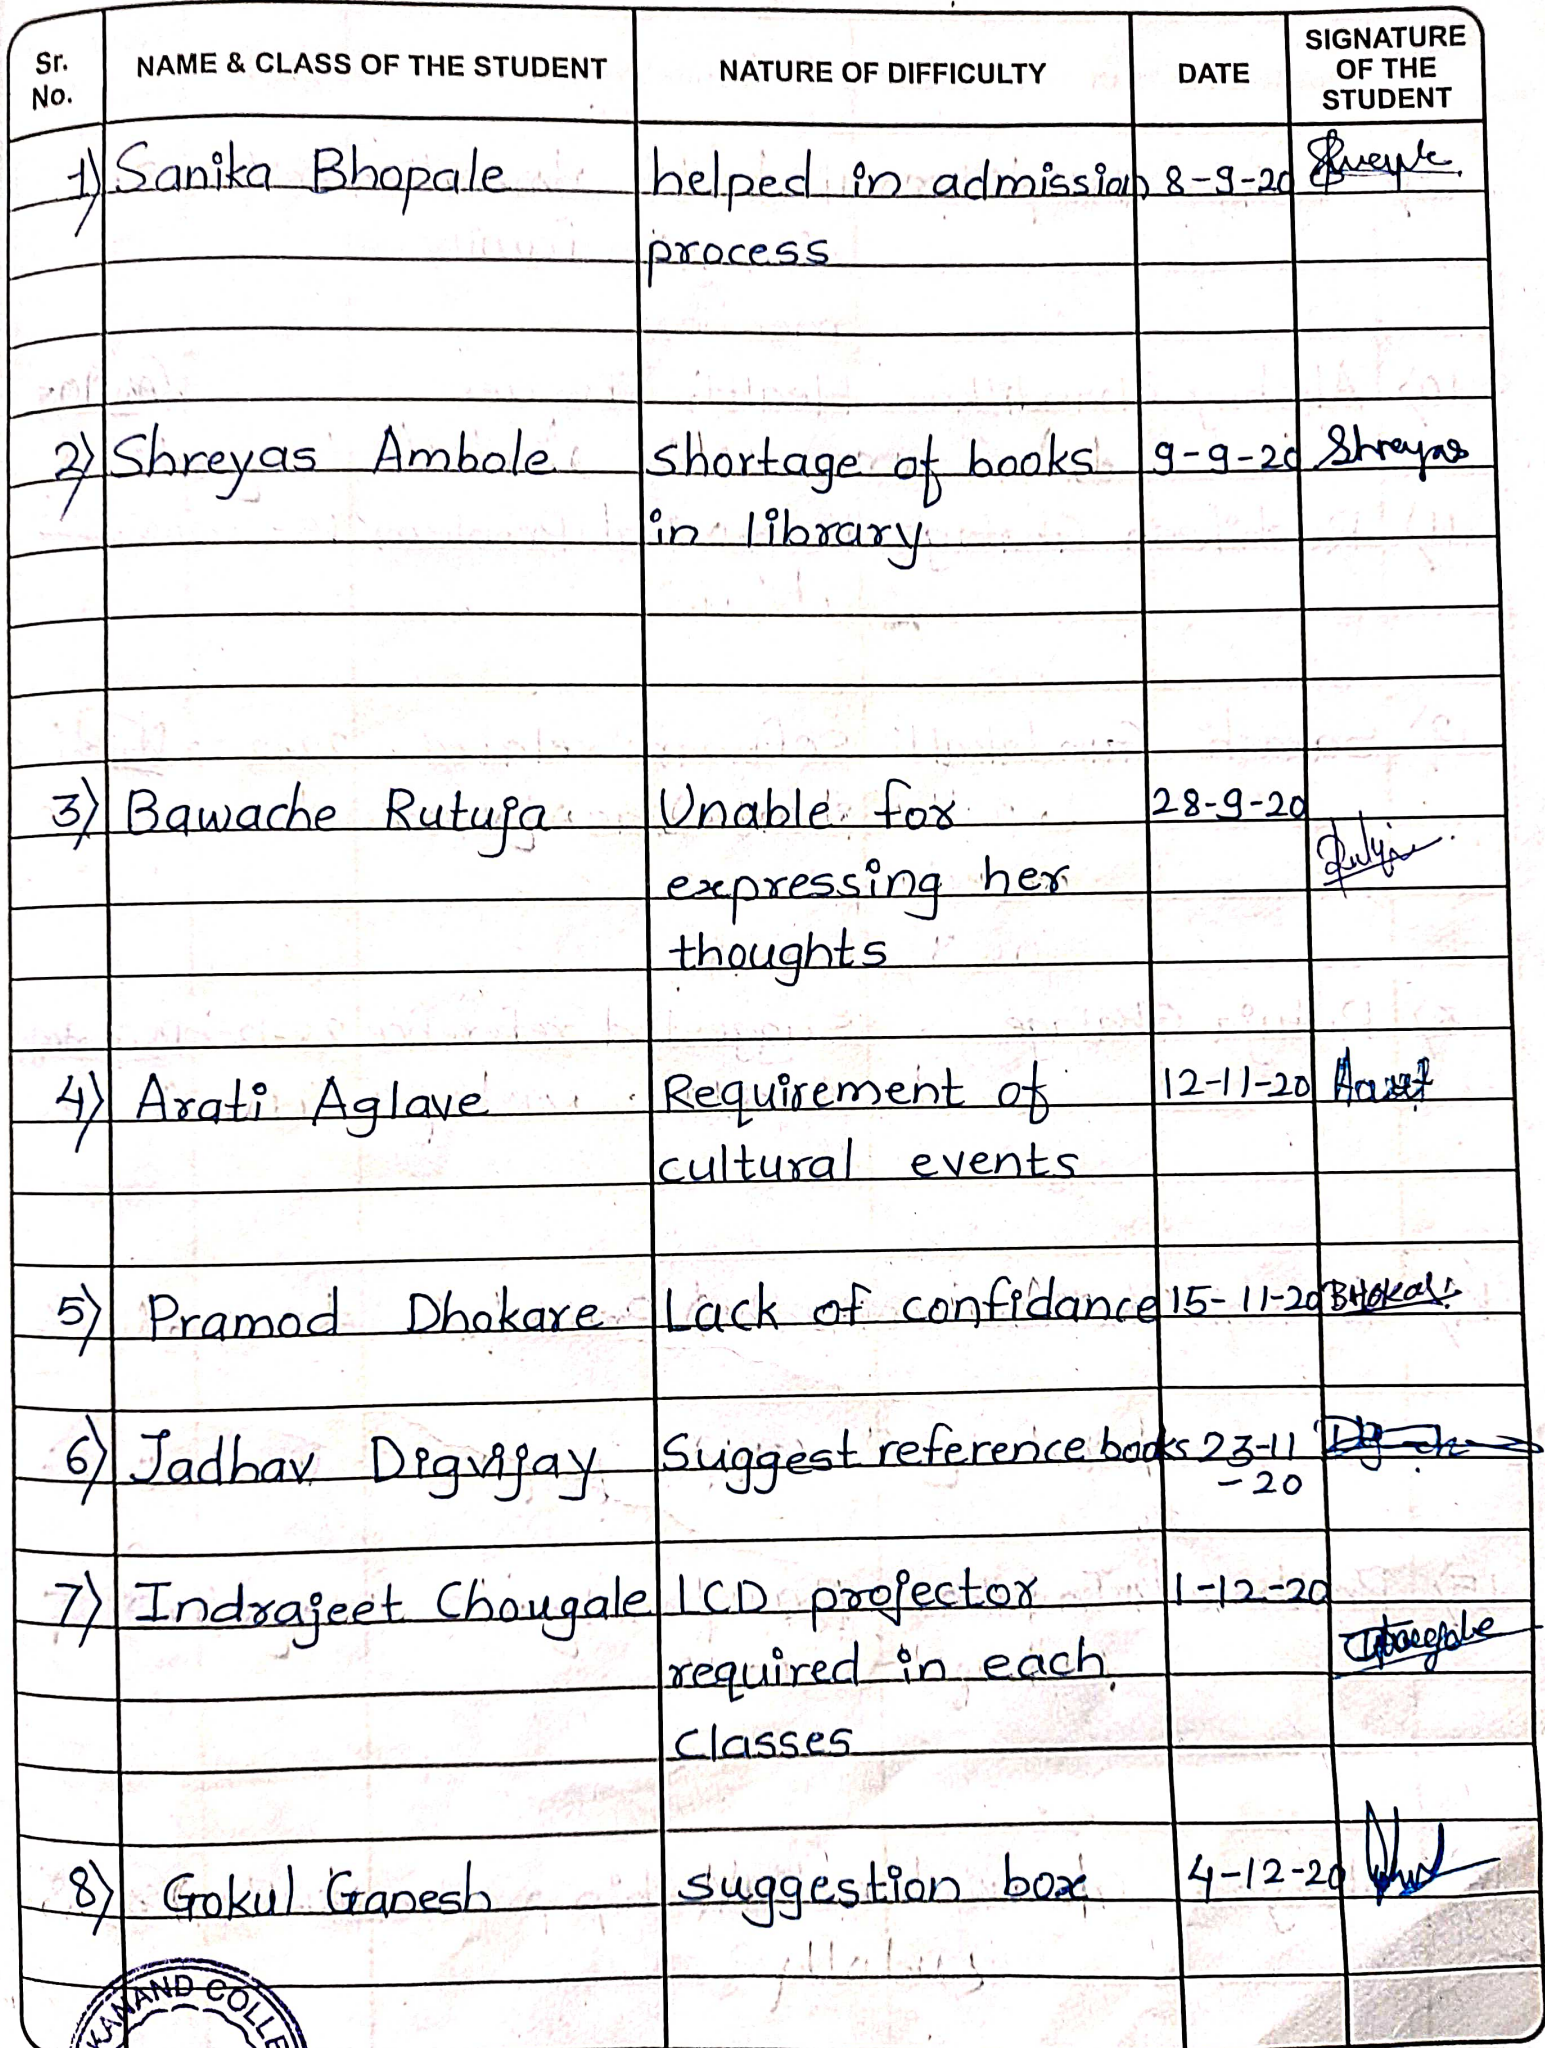 Sr. No. NAME & CLASS OF THE STUDENT NATURE OF DIFFICULTY DATE SIGNATURE OF THE STUDENT
1) Sanika Bhopale helped in admission 8-9-20
process
2) Shreyas Ambole shortage of books 9-9-20 Shreyas
in library
3) Bawache Rutuja Unable for 28-9-20
expressing her
thoughts
4) Arati Aglave Requirement of 12-11-20
cultural events
5) Pramod Dhokare Lack of confidance 15-11-20
6) Jadhav Digvijay Suggest reference books 23-11
-20
7) Indrajeet Chougale LCD projector 1-12-20
required in each
classes
8) Gokul Ganesh suggestion box 4-12-20
KANAND COLLE